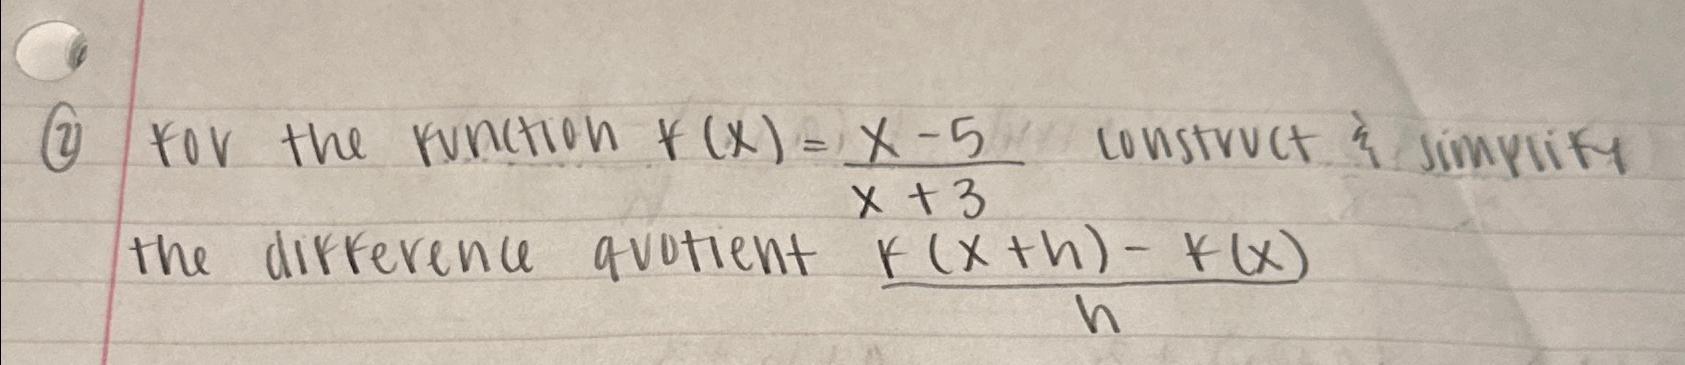 ② For the function f(x) = x - 5 / x + 3 construct & simplify
the difference quotient f(x+h) - f(x) / h